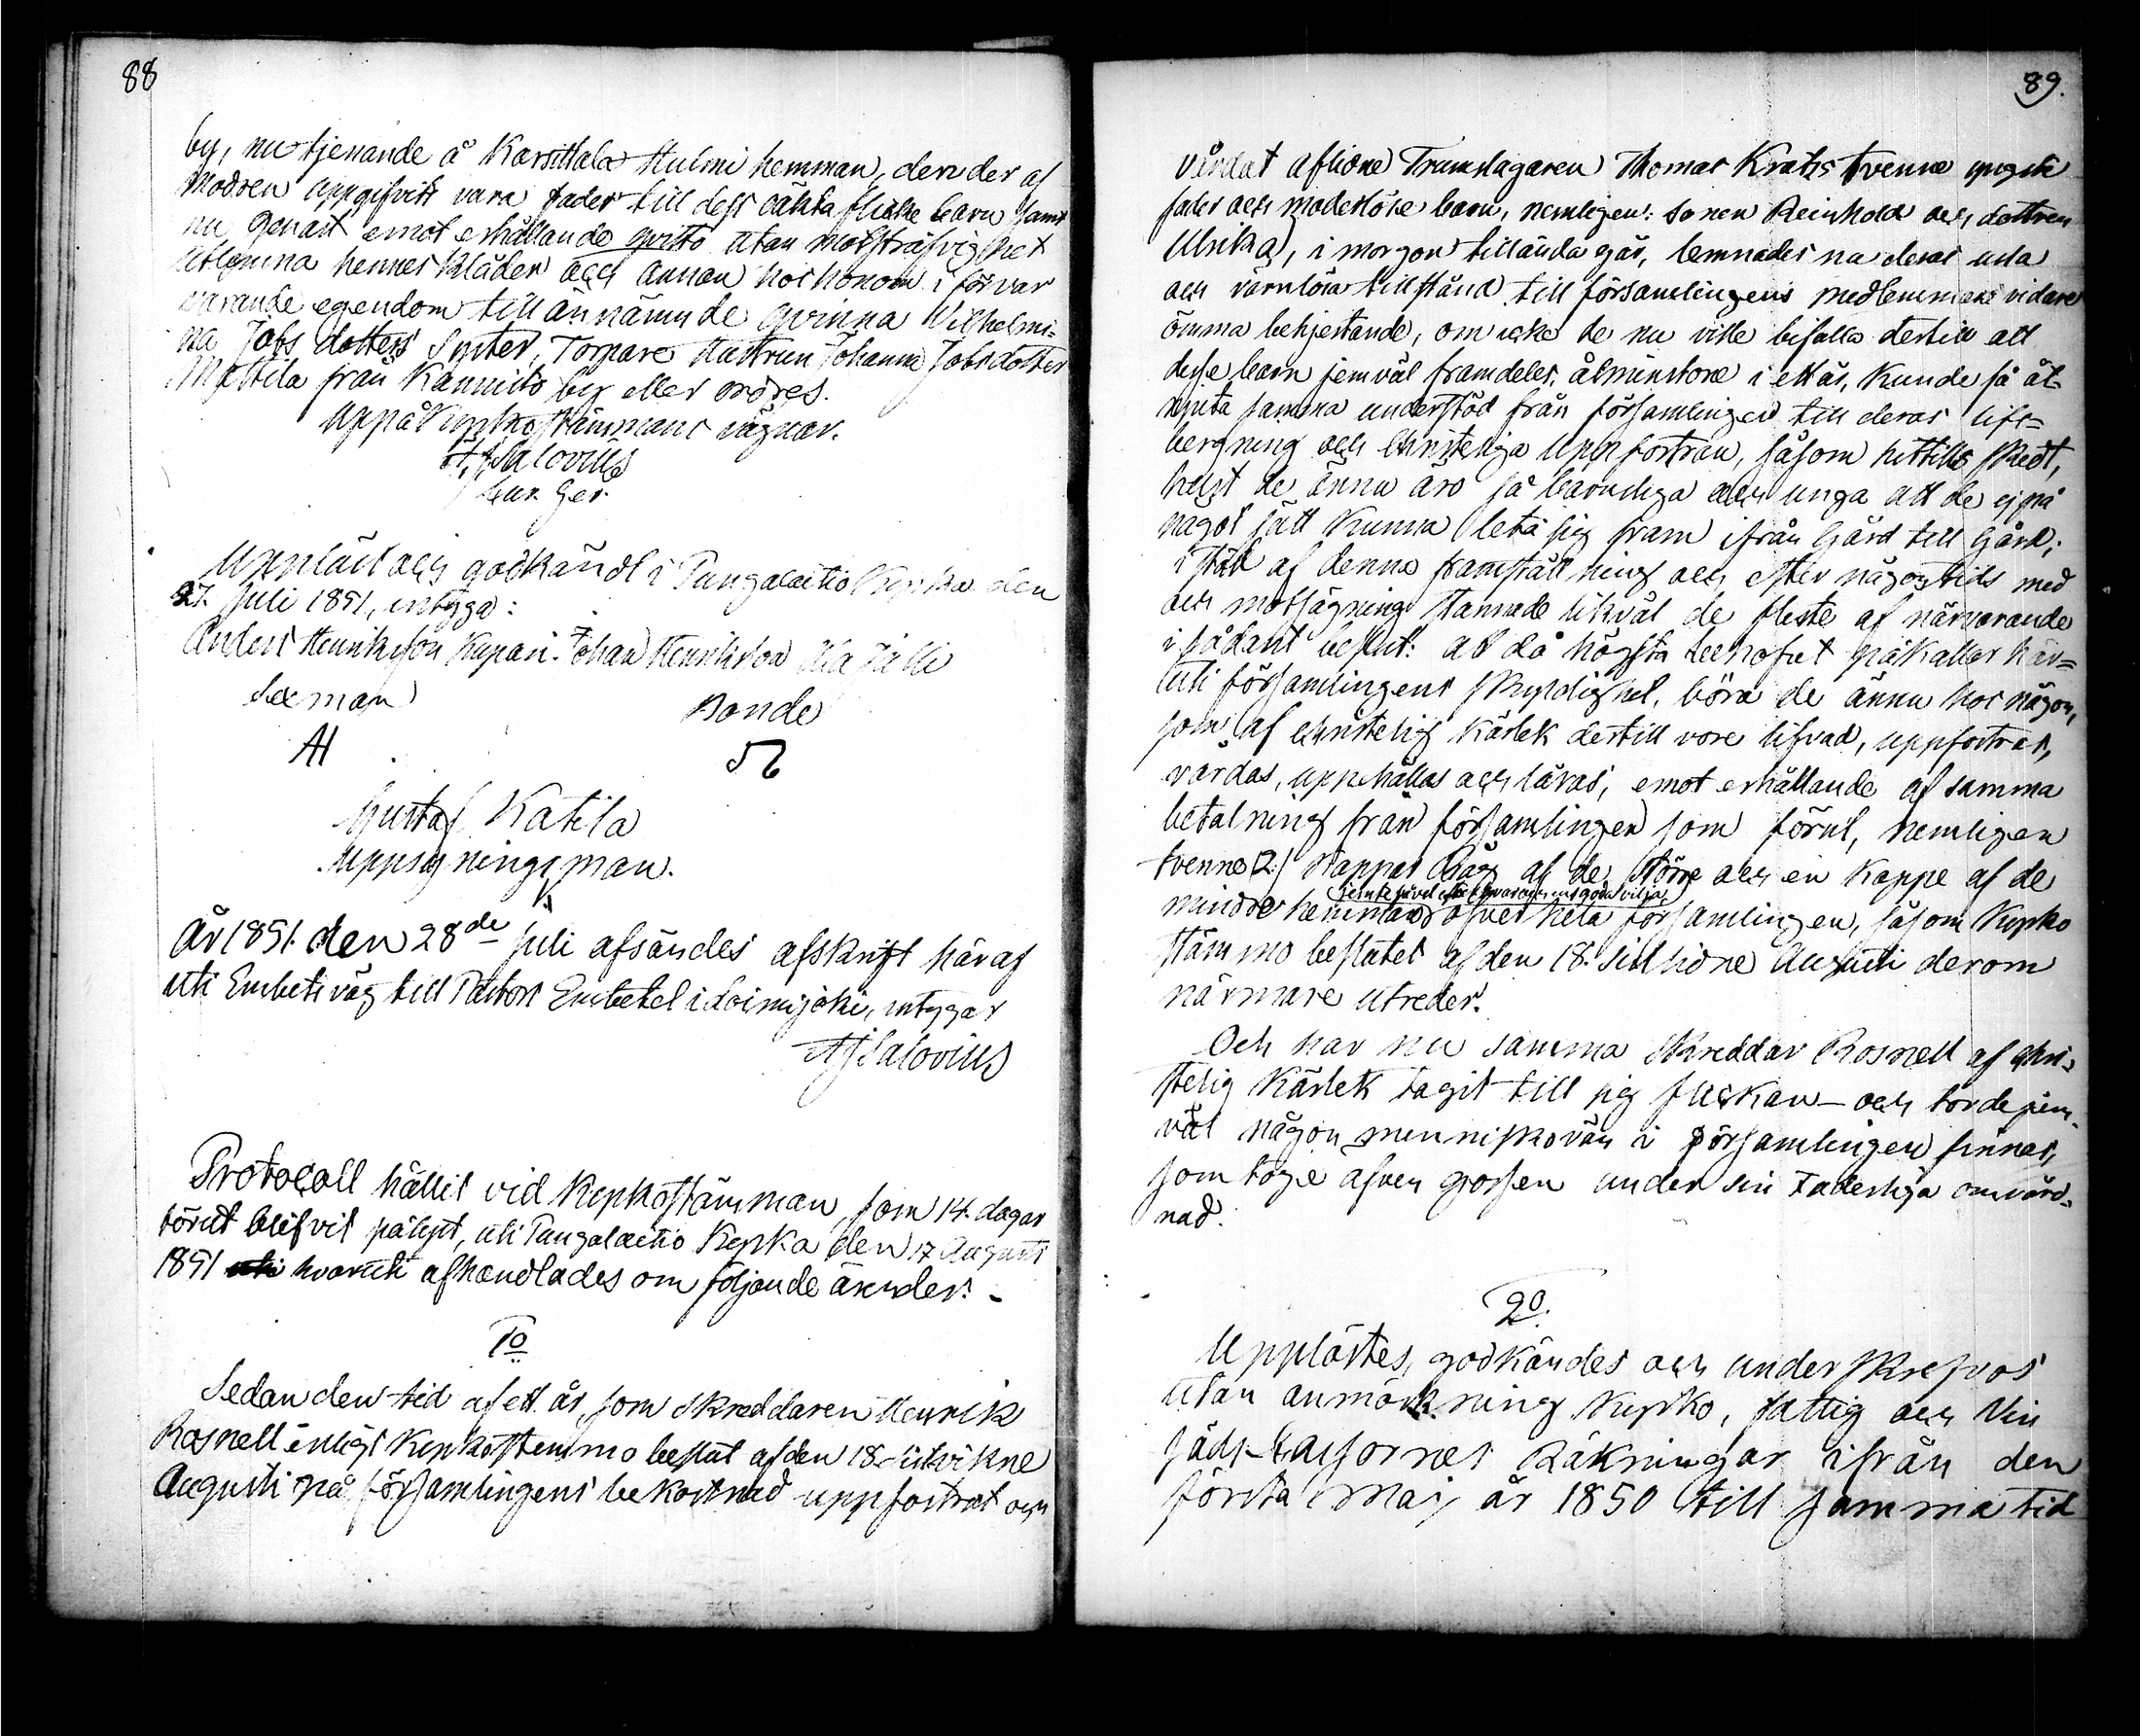 88
by, nu tjenande å Karsittala Hulmi hemman, den der af
Modren uppgifvits vara fader till dess oäkta flicke barn samt
nu genast emot erhållande qvitto utan motsträfvighet
utlemna hennes kläder och annan hos honom i förvar
varande egendom till annämnde qvinna Vilhelmi-
na Jobs dotters Syster, Torpare Hustrun Johanna Jobsdotter
Mattila från Kannisto by eller röres.
Uppå Kyrkostämmans vägnar.
A J Salovius
Cur. Ger.
Uppläst och godkändt i Pungalaitio Kyrka den
27. Juli 1851, intyga:
Anders Henriksson Kupari. Johan Henriksson Ala Jälli
Sexman Bonde
AH
Gustaf Katila
Uppsyningsman.
K
År 1851. den 28de Juli afsändes afskrift häraf
uti Embetsväg till Pastors Embetet i Loimijoki, intygar
A J Salovius
Protocoll hållit vid Kyrkostämman, som 14. dagar
förut blifvit pålyst, uti Pungalaitio Kyrka den 17 Augusti
1851 uti hvaruti afhandlades om följande ärender. -
1o
Sedan den tid af ett år som Skreddaren Henrik
Rosnell enligt Kyrkostemmo beslut af den 18. sistvikne
Augusti på församlingens bekostnad uppfostrat och
89.
vårdat aflidne Trumslagaren Thomas Krats tvenne yngsta
fader och moderlöse barn, nemligen: sonen Reinhold och dottren
Ulrika, i morgon tilländagår, lemnades nu deras usla
och värnlösa tillstånd till församlingens medlemmars vidare
ömma behjertande, om icke de nu ville bifalla dertill att
desse barn jemväl framdeles, åtminstone i ett år, kunde få åt-
njuta samma understöd från församlingen till deras lifs-
bergning och Christeliga uppfostran, såsom hittills skedt,
helst de ännu äro så barnsliga och unga att de ej på
något sätt kunna leta sig fram ifrån Gård till Gård;
i stöd af denna framställning och efter någon tids med
och motsägning stannade likväl de fleste af närvarande
i sådant beslut: at då högsta behofvet påkallar här-
uti församlingens skyldighet, böra de ännu hos någon,
som af christelig kärlek dertill vore lifvad, uppfostras,
vårdas, uppehållas och läras, emot erhållande af samma
betalning från församlingen som förut, nemligen
tvenne (2:) Kappar Råg af de större och en Kappe af de
mindre hemman öfver hela församlingen, såsom Kyrko
stämmo beslutet af den 18. sistlidne Augusti derom
närmare utreder.
Och har nu samma Skreddar Rosnell af Chri-
stelig kärlek tagit till sig flickan – och torde jem-
väl någon menniskovän i församlingen finnas,
som toge äfven gossen under sin Faderliga omvård-
nad.
2o.
Upplästes, godkändes och underskrefvos
utan anmärkning Kyrko, fattig och Vin
säds-Cassornes Räkningar ifrån den
första Maj år 1850 till samma tid